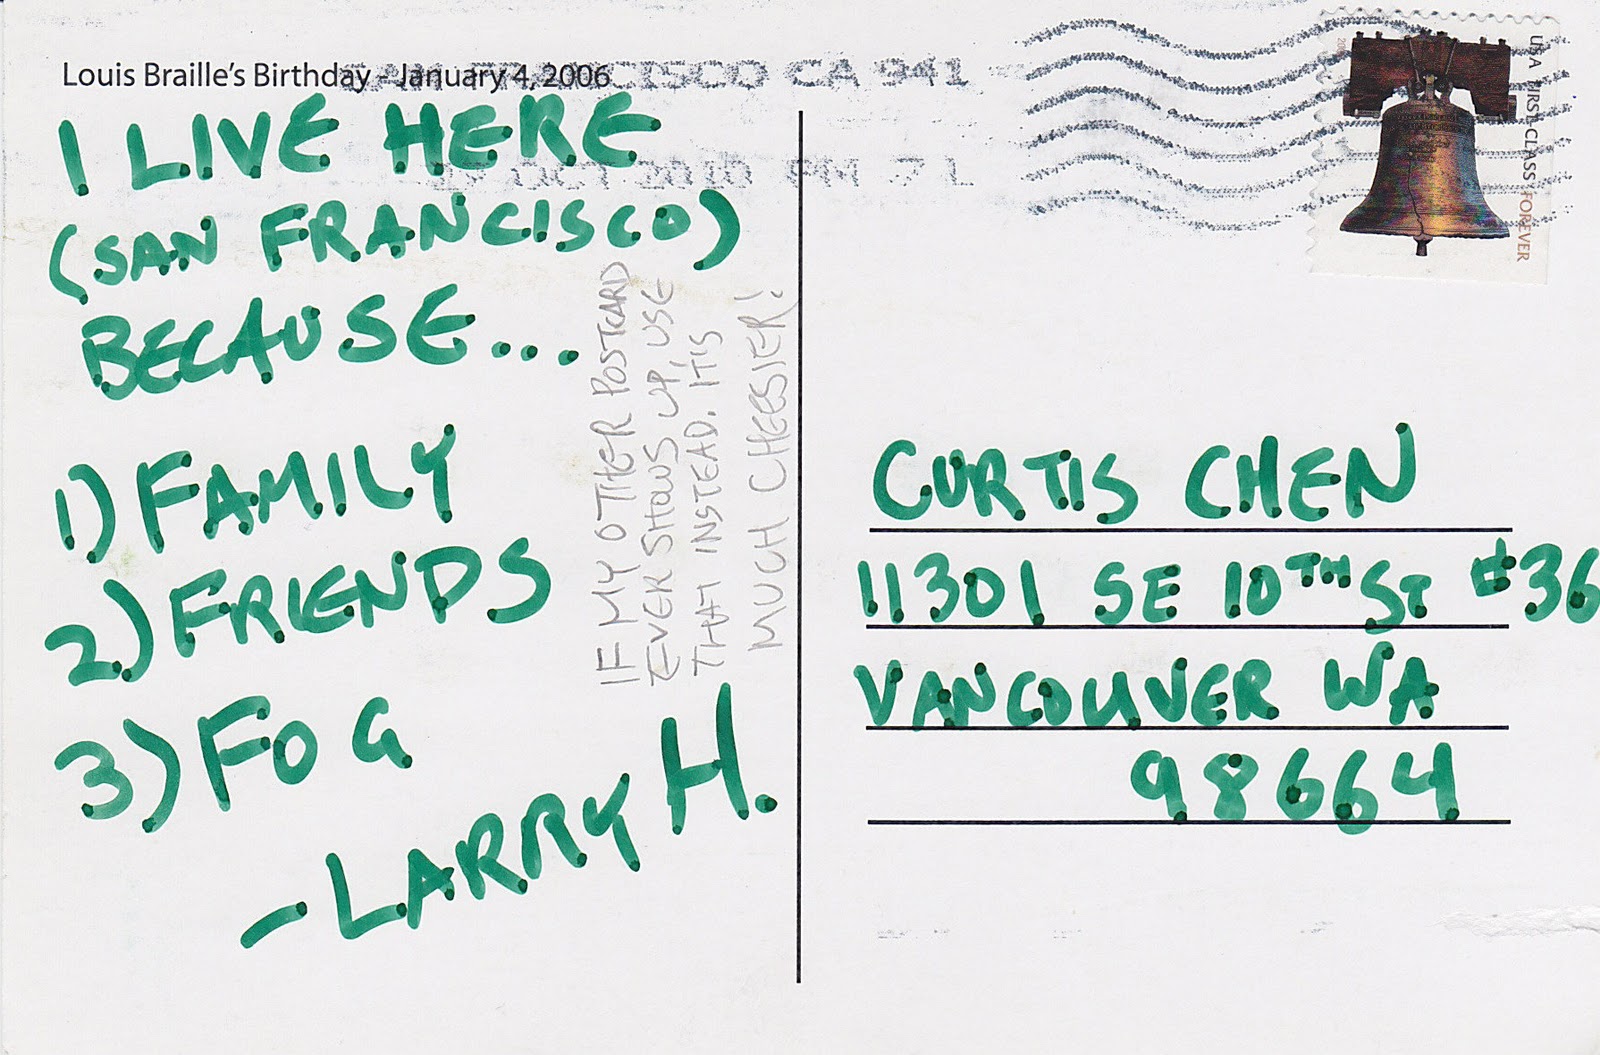 Louis Braille's Birthday - January 4, 2006
CISCO CA 941
OCT 2010 PM 7 L
I LIVE HERE
(SAN FRANCISCO)
BECAUSE...
1) FAMILY
2) FRIENDS
3) FOG
- LARRY H.
IF MY OTHER POSTCARD
EVER SHOWS UP, USE
THAT INSTEAD. IT IS
MUCH CHEESIER!
USA FIRST-CLASS FOREVER
CURTIS CHEN
11301 SE 10TH ST #36
VANCOUVER WA
98664